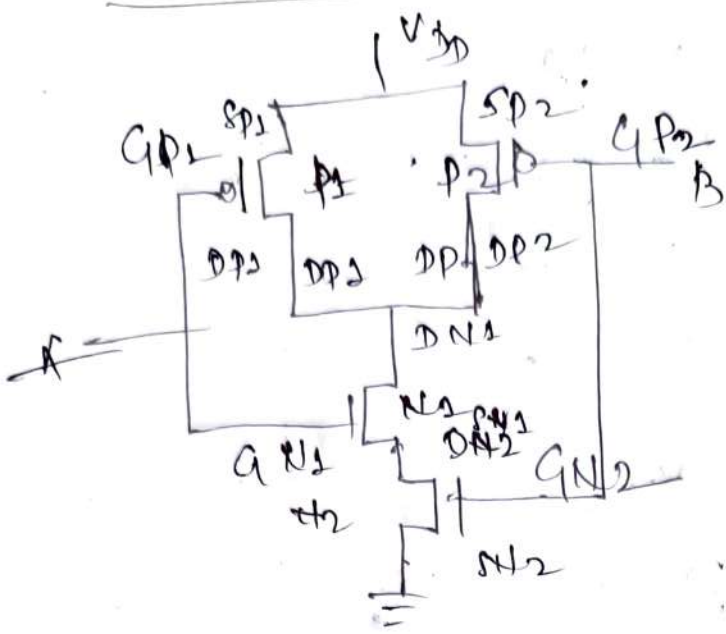 VDD
SP1 SP2
GP1 P1 P2 GP2
B
DP1 DP1 DP DP2
DN1
A
N1 SN1
DN2
GN1 GN2
SN2